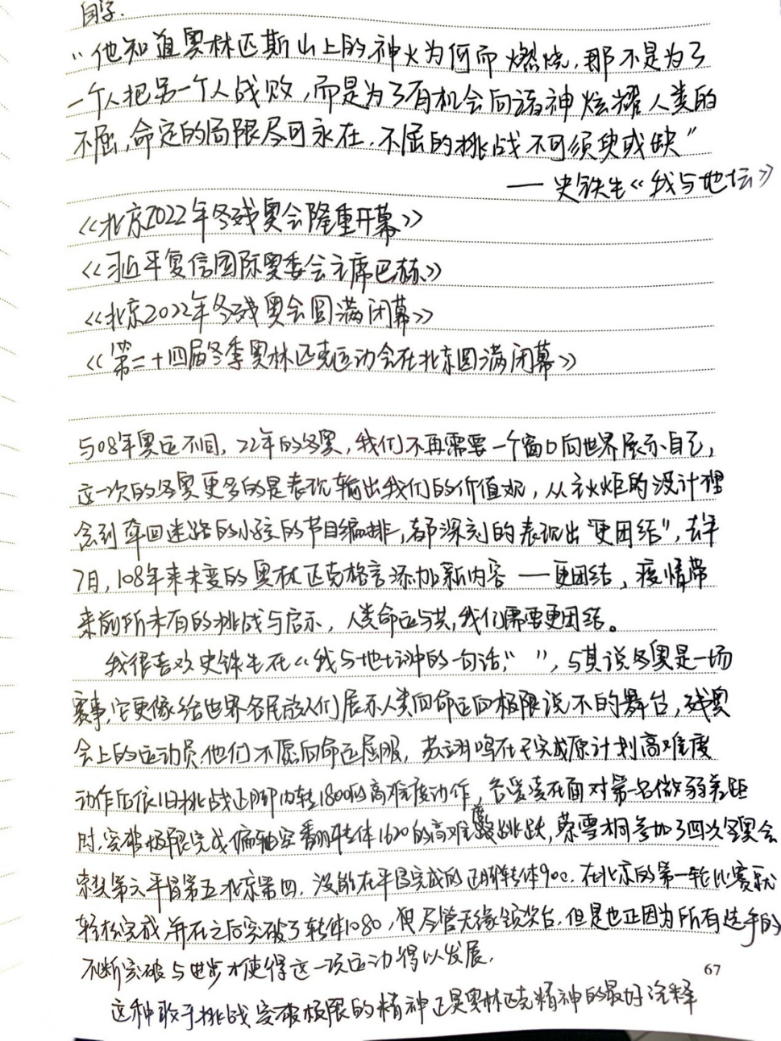 “他知道奥林匹斯山上的神火为何而燃烧，那不是为了
一个人把另一个人战败，而是为了有机会向诸神炫耀人类的
不屈，命定的局限尽可永在，不屈的挑战不可须臾或缺”
——史铁生《我与地坛》
《北京2022年冬残奥会隆重开幕》
《习近平复信国际奥委会主席巴赫》
《北京2022年冬残奥会圆满闭幕》
《第二十四届冬季奥林匹克运动会在北京圆满闭幕》
与08年奥运不同，22年的冬奥，我们不再需要一个窗口向世界展示自己，
这一次的冬奥更多的是表现输出我们的价值观，从主火炬的设计理
念到牵回迷路的小孩的节目编排，都深刻的表现出“更团结”，去年
7月，108年来未变的奥林匹克格言添加新内容——更团结，疫情带
来前所未有的挑战与启示，人类命运与共，我们需要更团结。
我很喜欢史铁生在《我与地坛》中的一句话，“ ”，与其说冬奥是一场
赛事，它更像给世界各民族人们展示人类向命运向极限说不的舞台，残奥
会上的运动员他们不愿向命运屈服，苏翊鸣在已完成原计划高难度
动作后依旧挑战正脚内转1800的高难度动作，谷爱凌在面对第一名微弱差距
时，突破极限完成偏轴空翻转体1620的高难度跳跃，蔡雪桐参加了四次冬奥会
索契第六平昌第五北京第四，没能在平昌完成的正脚转体900，在北京的第一轮比赛就
轻松完成并在之后突破了转体1080，便尽管无缘领奖台，但是也正因为所有选手的
不断突破与进步才使得这一项运动得以发展，
67
这种敢于挑战突破极限的精神正是奥林匹克精神的最好诠释